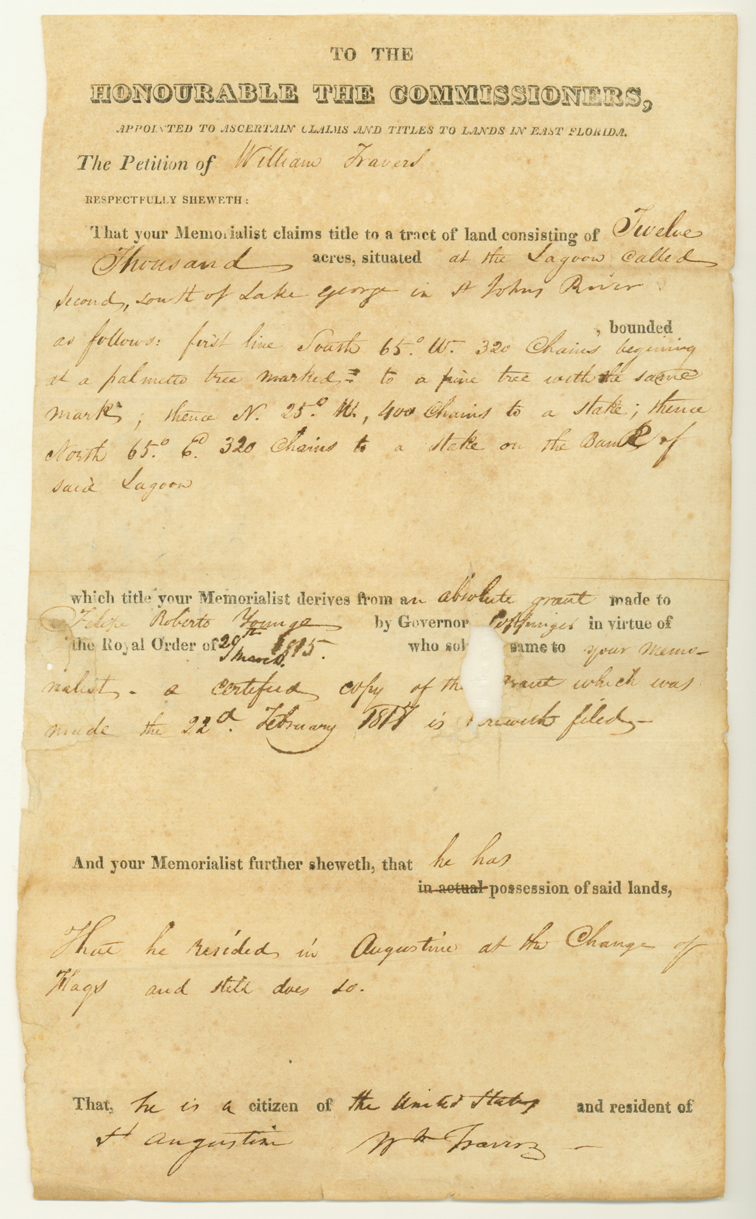 TO THE
HONOURABLE THE COMMISSIONERS,
APPOINTED TO ASCERTAIN CLAIMS AND TITLES TO LANDS IN EAST FLORIDA.
The Petition of William Travers
RESPECTFULLY SHEWETH:
That your Memorialist claims title to a tract of land consisting of Twelve
Thousand acres, situated at the Lagoon called
Second, south of Lake george in St Johns River
, bounded
as follows: first line South 65.° W. 320 Chains begining
at a palmetto tree marked = to a pine tree with the same
mark; thence N. 25.° W., 400 Chains to a stake; thence
North 65.° E. 320 Chains to a stake on the Bank of
said Lagoon
which title your Memorialist derives from an absolute grant made to
Felipe Roberto Younge by Governor Coppinger in virtue of
the Royal Order of 29th March 1815. who sol same to your Memo-
rialist - a certified copy of the grant which was
made the 22d. February 1817 is herewith filed -
And your Memorialist further sheweth, that he has
in actual possession of said lands,
That he resided in Augustine at the Change of
Flags and still does so.
That, he is a citizen of the United States and resident of
St Augustine Wm Travers